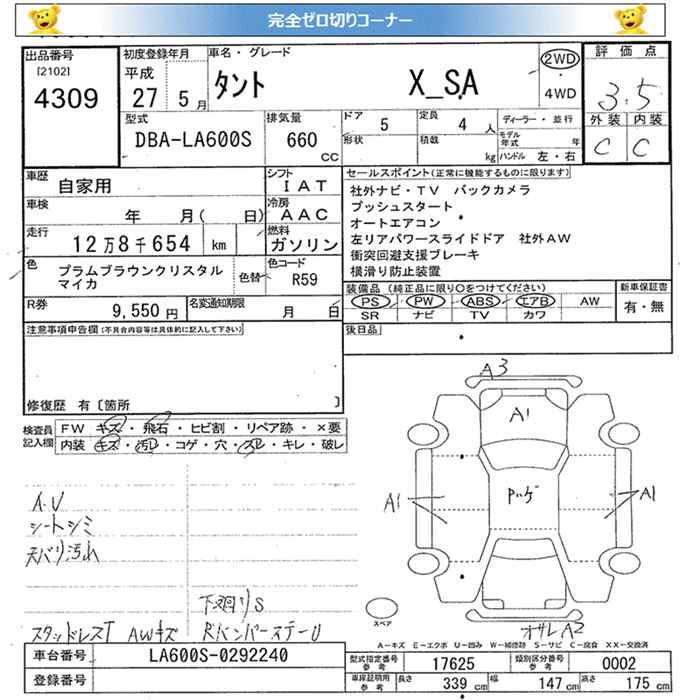 完全ゼロ切りコーナー
出品番号
[2102]
4309
初度登録年月
平成
27 5 月
車名・グレード
タント X_SA
2WD
・
4WD
評価点
3.5
外装 内装
C C
型式
DBA-LA600S
排気量
660
CC
ドア 5
形状
定員 4 人
積載 kg
ディーラー・並行
モデル年式 年
ハンドル 左・右
車歴
自家用
シフト
IAT
車検
年 月( 日)
冷房
AAC
走行
12万8千654 km
燃料
ガソリン
色
プラムブラウンクリスタル
マイカ
色替
色コード
R59
R券
9,550 円
名変通知期限
月 日
セールスポイント(正常に機能するものに限ります)
社外ナビ・TV バックカメラ
プッシュスタート
オートエアコン
左リアパワースライドドア 社外AW
衝突回避支援ブレーキ
横滑り防止装置
装備品 (純正品に限り○をつけてください)
PS PW ABS エアB AW
SR ナビ TV カワ
新車保証書
有・無
後日品
注意事項申告欄(不具合内容等は具体的に記入して下さい)
修復歴 有〔箇所 〕
検査員
記入欄
FW キズ・飛石・ヒビ割・リペア跡・×要
内装 キズ・汚レ・コゲ・穴・スレ・キレ・破レ
A.V
シートシミ
天バリ汚れ
下廻りS
スタッドレスT AWキズ RバンパーステーU
A3
A1
A1
A1
オサレA2
スペア
A-キズ E-エクボ U-凹み W-補修跡 S-サビ C-腐食 XX-交換済
車台番号
LA600S-0292240
登録番号
型式指定番号
参考
17625
類別区分番号
参考
0002
車検証明用
参考
長さ 339 cm
幅 147 cm
高さ 175 cm